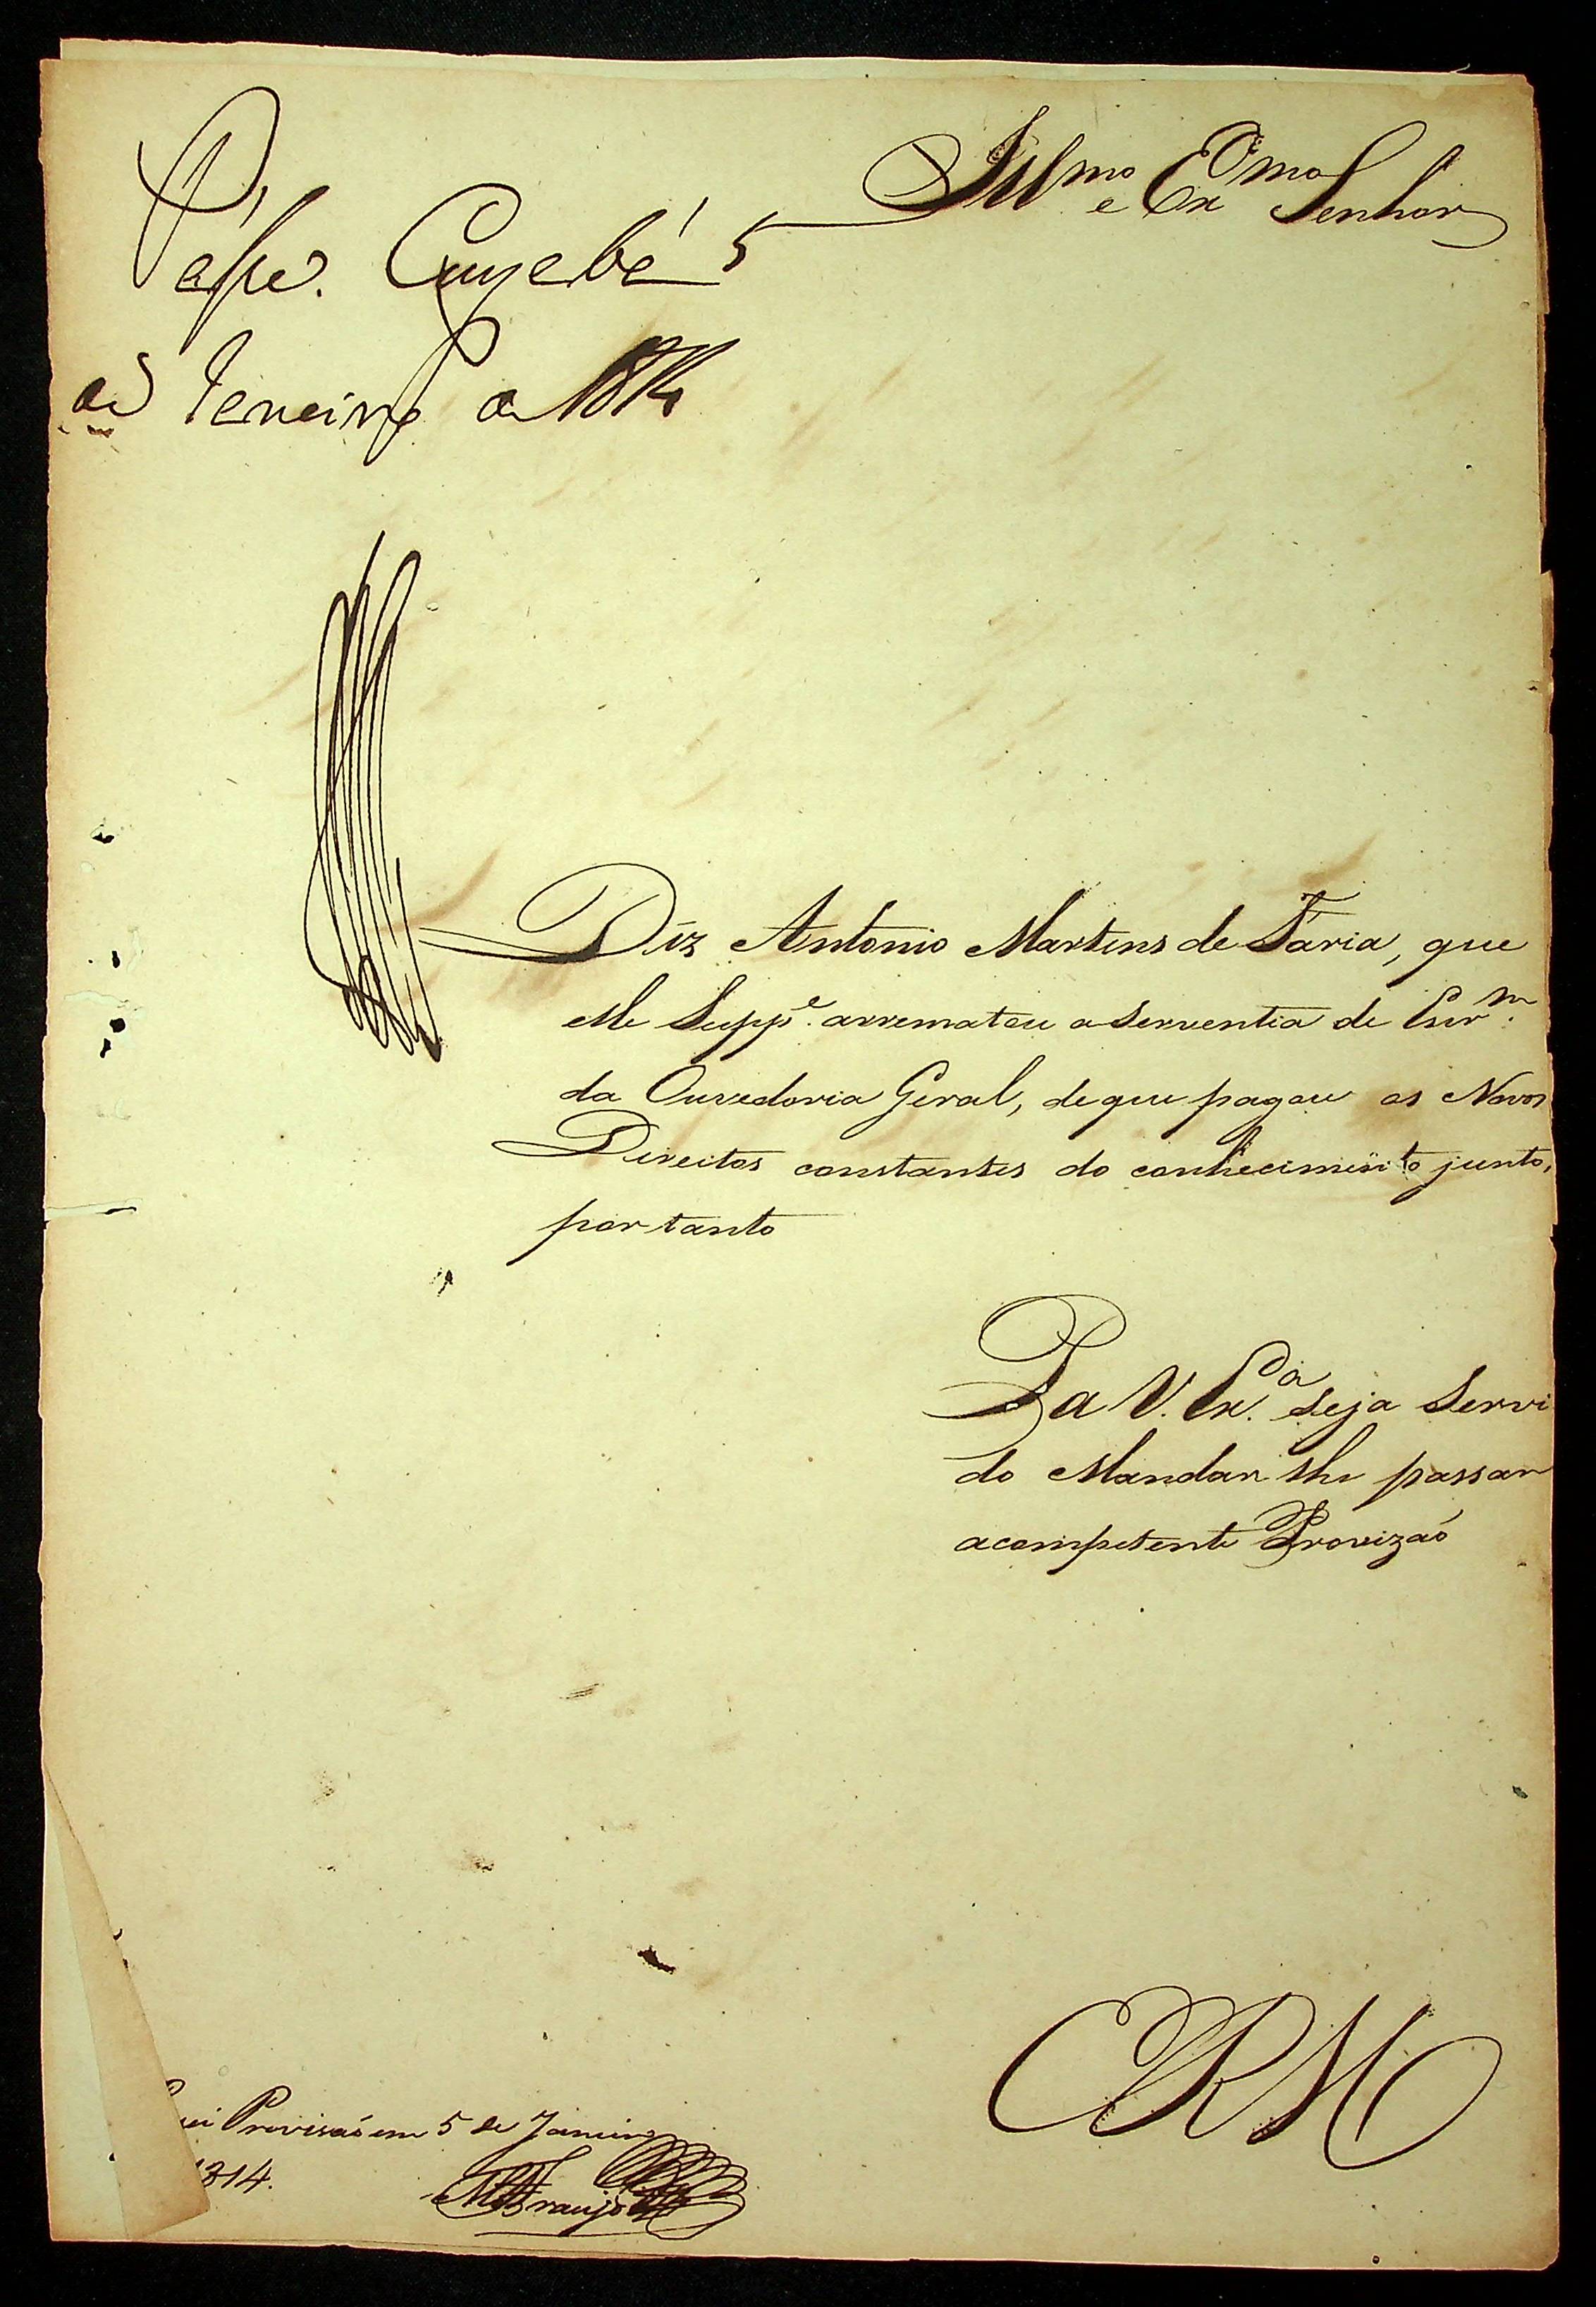 Illmo e Exmo Senhor
Passe. Cuyabá 5
de Janeiro de 1814
Diz Antonio Martins de Faria, que
elle Suppe. arrematou a serventia de Escrm.
da Ouvedoria Geral, de que pagou os Novos
Direitos constantes do conhecimento junto,
por tanto
Pa V. Exa. seja Servi
do Mandar lhe passar
a competente Provizaõ
ERM
Provisaõ em 5 de Janeiro
1814.
Araujo